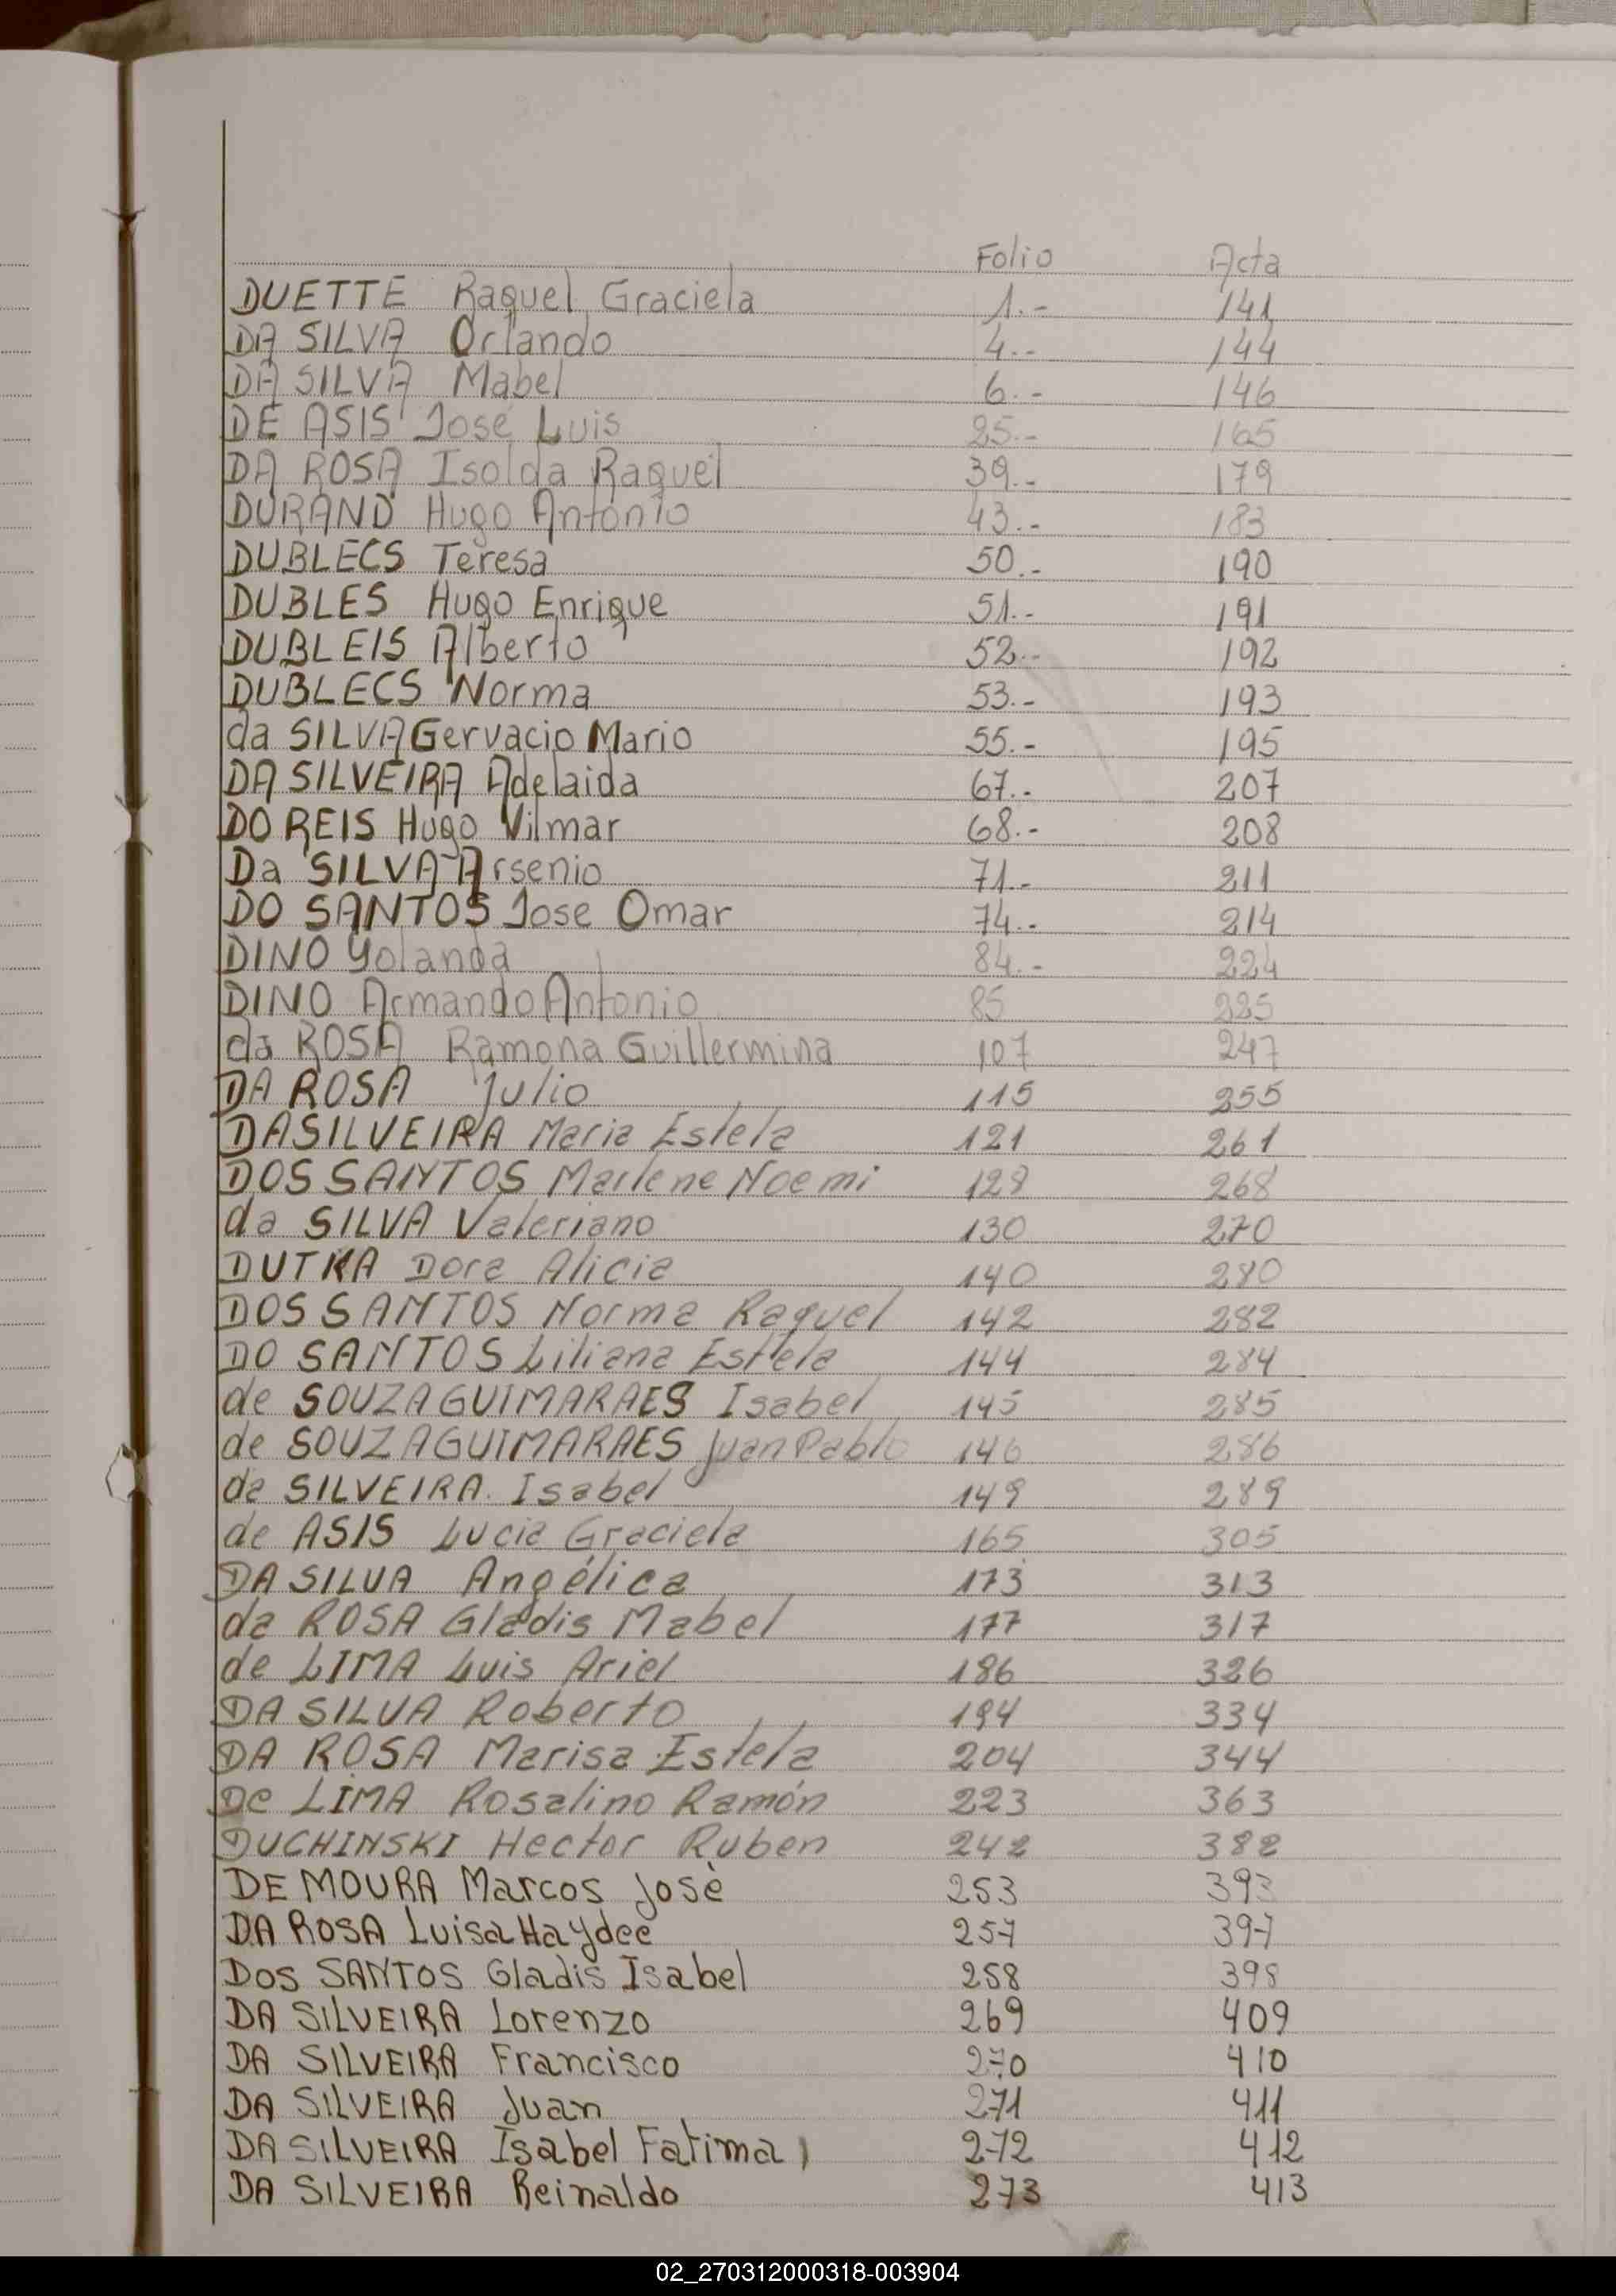 Folio Acta
DUETTE Raquel Graciela 1.- 141
DA SILVA Orlando 4.- 144
DA SILVA Mabel 6.- 146
DE ASIS José Luis 25.- 165
DA ROSA Isolda Raquel 39.- 179
DURAND Hugo Antonio 43.- 183
DUBLECS Teresa 50.- 190
DUBLES Hugo Enrique 51.- 191
DUBLEIS Alberto 52.- 192
DUBLECS Norma 53.- 193
da SILVA Gervacio Mario 55.- 195
DA SILVEIRA Adelaida 67.- 207
DO REIS Hugo Vilmar 68.- 208
Da SILVA Arsenio 71.- 211
DO SANTOS Jose Omar 74.- 214
DINO Yolanda 84.- 224
DINO Armando Antonio 85 225
da ROSA Ramona Guillermina 107 247
DA ROSA Julio 115 255
DASILVEIRA Maria Estela 121 261
DOS SANTOS Marlene Noemi 128 268
da SILVA Valeriano 130 270
DUTRA Dora Alicia 140 280
DOS SANTOS Norma Raquel 142 282
DO SANTOS Liliana Estela 144 284
de SOUZA GUIMARAES Isabel 145 285
de SOUZA GUIMARAES Juan Pablo 146 286
da SILVEIRA. Isabel 149 289
de ASIS Lucia Graciela 165 305
DA SILVA Angélica 173 313
da ROSA Gladis Mabel 177 317
de LIMA Luis Ariel 186 326
DA SILVA Roberto 194 334
DA ROSA Marisa Estela 204 344
De LIMA Rosalino Ramón 223 363
DUCHINSKI Hector Ruben 242 382
DE MOURA Marcos Josè 253 393
DA ROSA Luisa Haydee 257 397
Dos SANTOS Gladis Isabel 258 398
DA SILVEIRA Lorenzo 269 409
DA SILVEIRA Francisco 270 410
DA SILVEIRA Juan 271 411
DA SILVEIRA Isabel Fatima 272 412
DA SILVEIRA Reinaldo 273 413
02_270312000318-003904